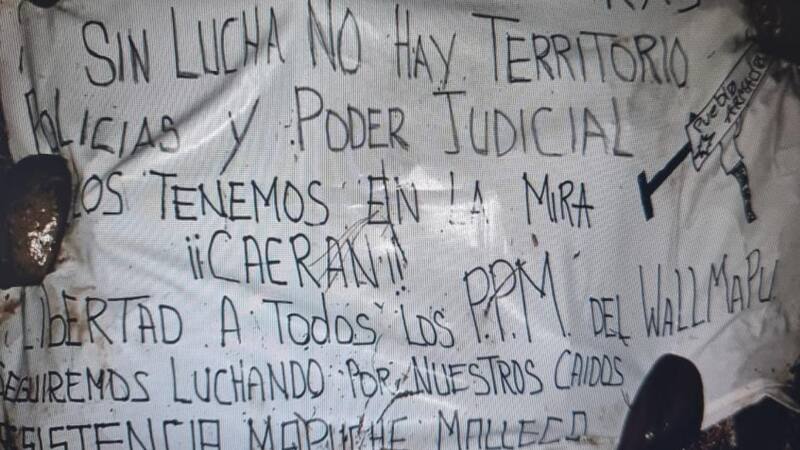 SIN LUCHA NO HAY TERRITORIO
POLICIAS Y PODER JUDICIAL
Pueblo
ARMADO
LOS TENEMOS EN LA MIRA
¡¡CAERAN¡¡
LIbERTAD A TODOS LOS P.P.M. DEL WALLMAPU
SEGUIREMOS LUCHANDO POR NUESTROS CAIDOS
RESISTENCIA MAPUCHE MALLECO